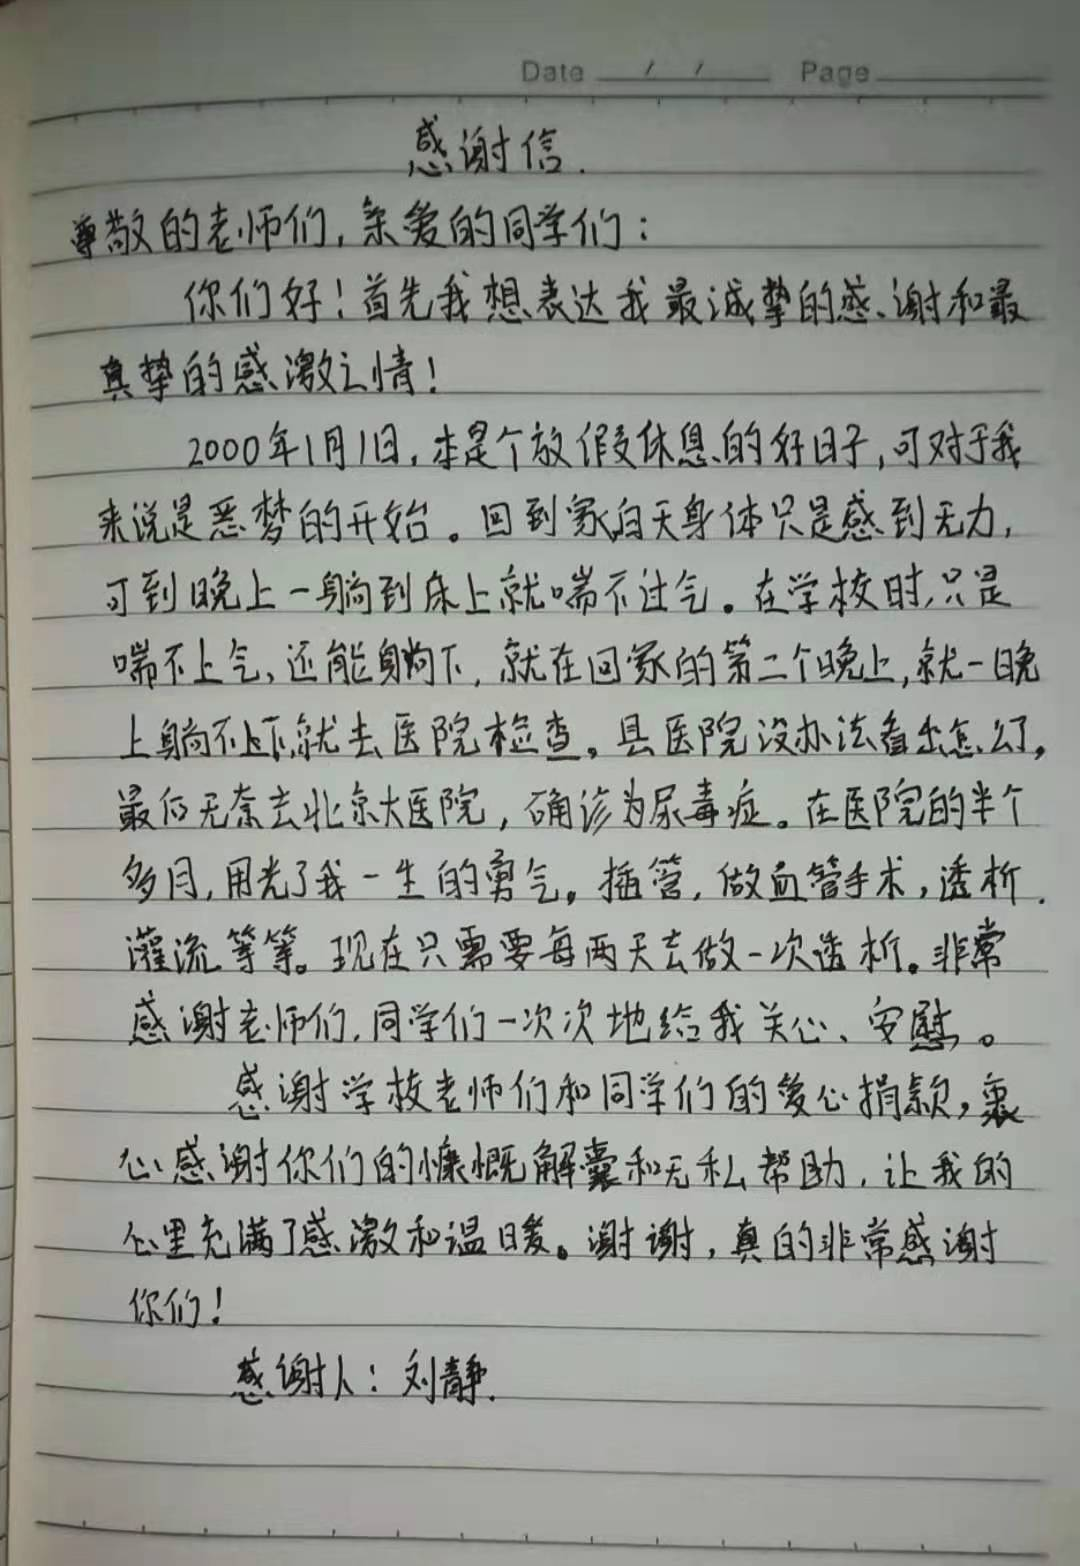 Date / / Page
感谢信.
尊敬的老师们,亲爱的同学们:
你们好!首先我想表达我最诚挚的感谢和最
真挚的感激之情!
2000年1月1日,本是个放假休息的好日子,可对于我
来说是恶梦的开始。回到家白天身体只是感到无力,
可到晚上一躺到床上就喘不过气。在学校时,只是
喘不上气,还能躺下,就在回家的第二个晚上,就一晚
上躺不下,就去医院检查。县医院没办法看出怎么了,
最后无奈去北京大医院,确诊为尿毒症。在医院的半个
多月,用光了我一生的勇气。插管,做血管手术,透析.
灌流等等。现在只需要每两天去做一次透析。非常
感谢老师们,同学们一次次地给我关心、安慰。
感谢学校老师们和同学们的爱心捐款,衷
心感谢你们的慷慨解囊和无私帮助,让我的
心里充满了感激和温暖。谢谢,真的非常感谢
你们!
感谢人:刘静.